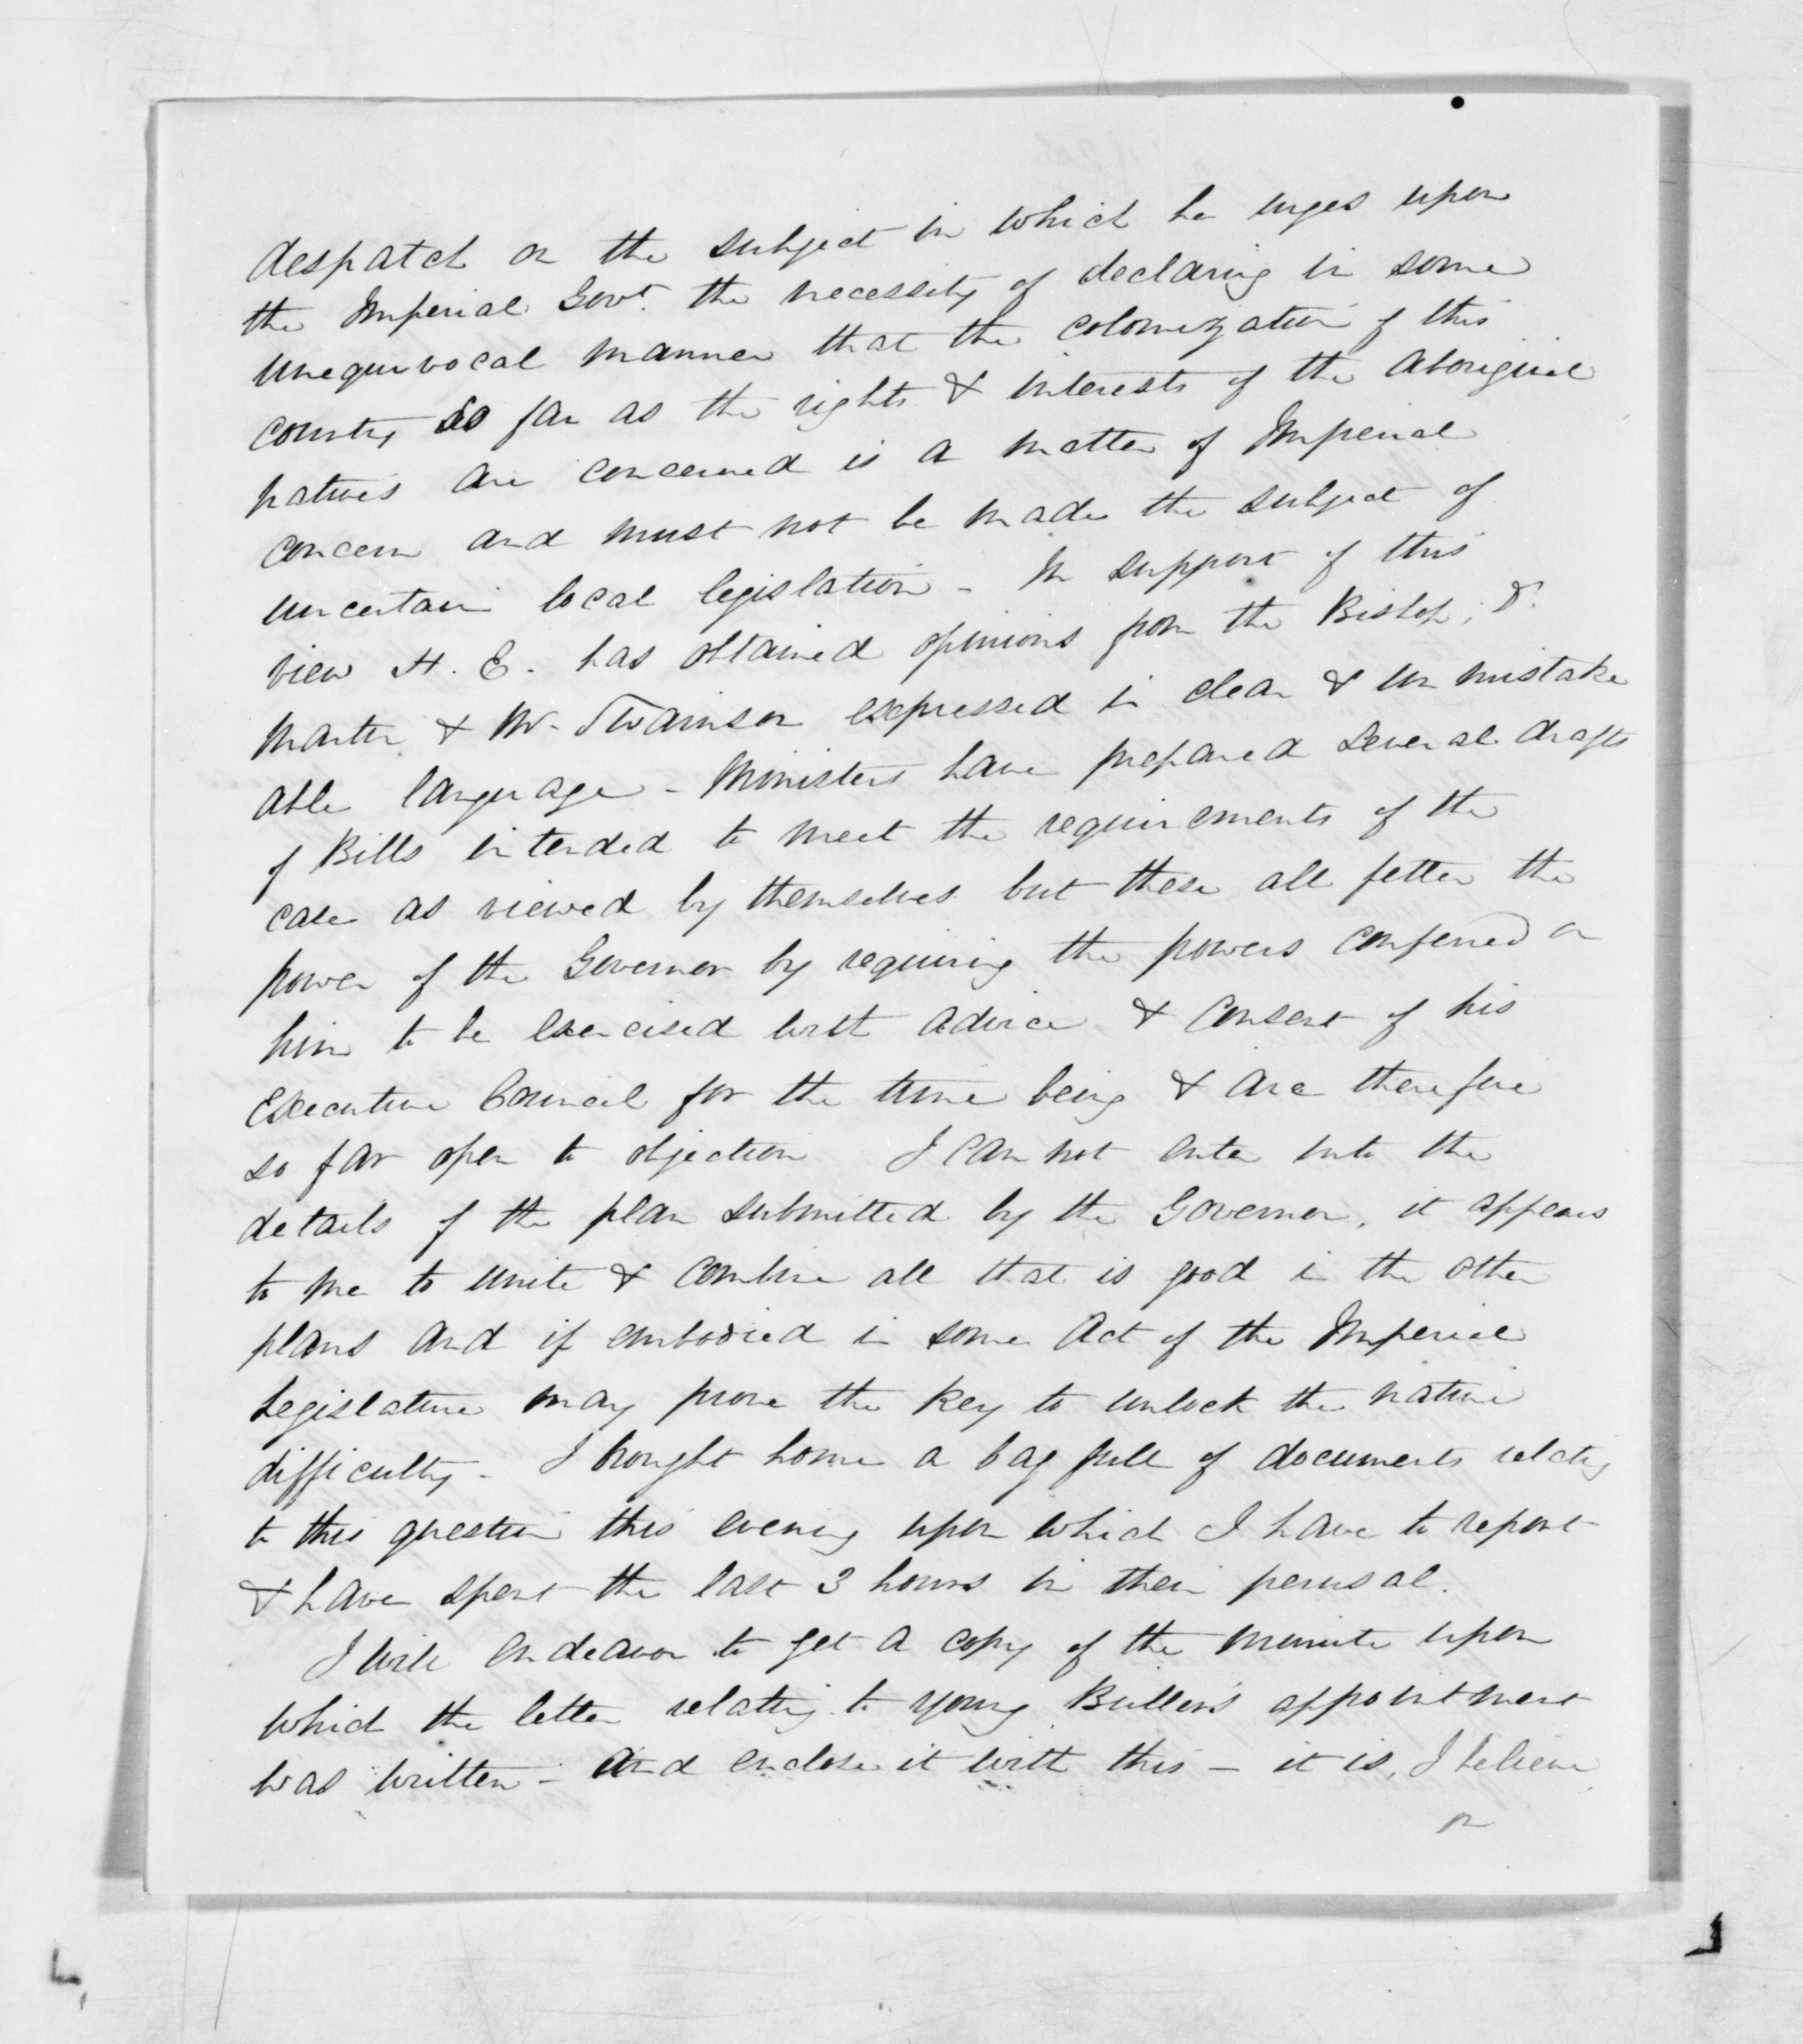 despatch on the subject in which he urges upon
the Imperial Govt. the necessity of declaring in some
unequivocal manner that the colonization of this
country so far as the rights & interests of the Aboriginal
natives are concerned is a matter of Imperial
concern and must not be made the subject of
uncertain local legislation - In support of this
view H. E. has obtained opinions from the Bishop, Dr.
Martin & Mr. Swainson expressed in clear & unmistake
able language - Ministers have prepared several drafts
of Bills intended to meet the requirements of the
case as viewed by themselves but these all fetter the
power of the Governor by requiring the powers conferred on
him to be exercised with advice & consent of his
Executive Council for the time being & are therefore
so far open to objection I can not enter into the
details of the plan submitted by the Governor, it appears
to me to unite & combine all that is good in the other
plans and if embodied in some Act of the Imperial
Legislature may prove the key to unlock the native
difficulty - I brought home a bag full of documents relating
to this question this evening upon which I have to report
& have spent the last 3 hours in their perusal.
I will endeavor to get a copy of the minute upon
which the letter relating to young Buller's appointment
was written - and enclose it with this - it is, I believe,
on